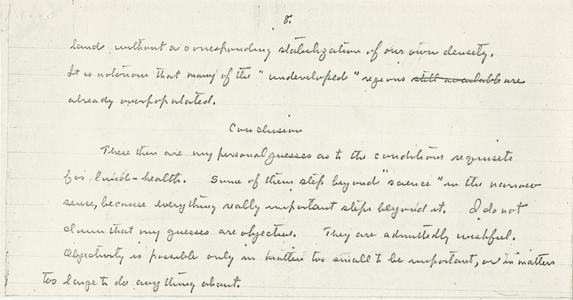 8.
land without a corresponding stabilization of our own density.
It is notorious that many of the "undeveloped" regions still available are
already overpopulated.
Conclusion
These then are my personal guesses as to the conditions requisite
for land-health. Some of them step beyond "science" in the narrow
sense, because everything really important steps beyond it. I do not
claim that my guesses are objective. They are admittedly wishful.
Objectivity is possible only in matters too small to be important, or in matters
too large to do anything about.